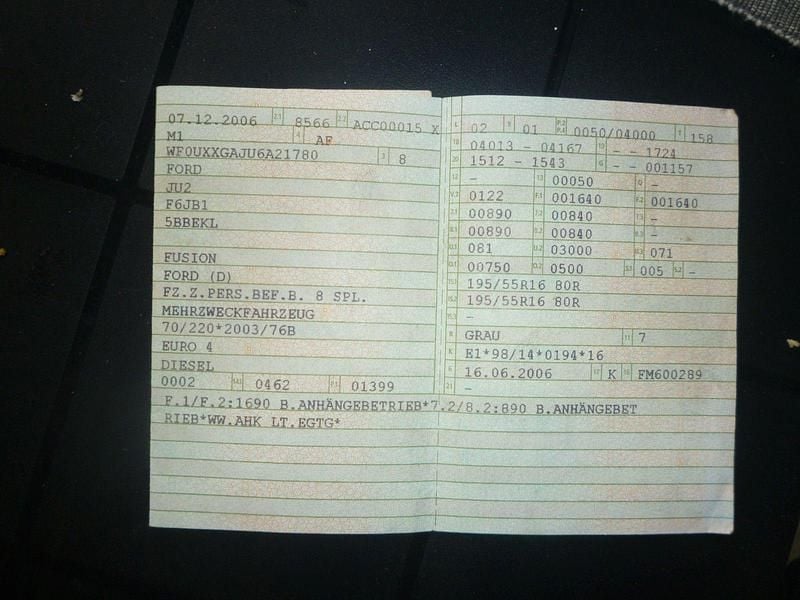 07.12.2006 2.1 8566 2.2 ACC00015 X
M1 4 AF
WF0UXXGAJU6A21780 3 8
FORD
JU2
F6JB1
5BBEKL
FUSION
FORD (D)
FZ.Z.PERS.BEF.B. 8 SPL.
MEHRZWECKFAHRZEUG
70/220*2003/76B
EURO 4
DIESEL
0002 0462 P.1 01399
L 02 9 01 P.2 P.4 0050/04000 T 158
18 04013 - 04167 19 - - 1724
20 1512 - 1543 G - - 001157
12 - 13 00050 Q -
V.7 0122 F.1 001640 F.2 001640
7.1 00890 7.2 00840 7.3 -
8.1 00890 8.2 00840 8.3 -
U.1 081 U.2 03000 U.3 071
O.1 00750 O.2 0500 S.1 005 S.2 -
15.1 195/55R16 80R
15.2 195/55R16 80R
15.3 -
R GRAU 11 7
K E1*98/14*0194*16
6 16.06.2006 17 K 16 FM600289
21 -
F.1/F.2:1690 B.ANHÄNGEBETRIEB*7.2/8.2:890 B.ANHÄNGEBET
RIEB*WW.AHK LT.EGTG*